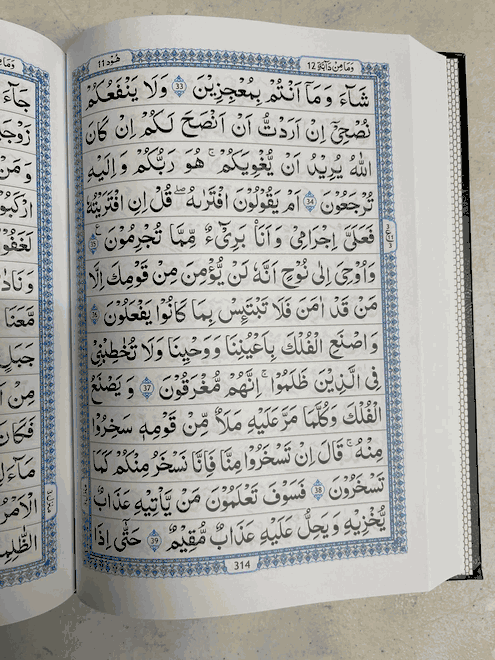 وَمَا مِنْ دَآبَّةٍ 12
هُوْد 11
شَآءَ وَمَآ اَنْتُمْ بِمُعْجِزِيْنَ 33 وَلَا يَنْفَعُكُمْ
نُصْحِيْٓ اِنْ اَرَدْتُّ اَنْ اَنْصَحَ لَكُمْ اِنْ كَانَ
اللّٰهُ يُرِيْدُ اَنْ يُّغْوِيَكُمْ ۚ هُوَ رَبُّكُمْ وَاِلَيْهِ
تُرْجَعُوْنَ 34 اَمْ يَقُوْلُوْنَ افْتَرٰىهُ ؕ قُلْ اِنِ افْتَرَيْتُهٗ
فَعَلَيَّ اِجْرَامِيْ وَاَنَا۠ بَرِيْٓءٌ مِّمَّا تُجْرِمُوْنَ 35
وَاُوْحِيَ اِلٰى نُوْحٍ اَنَّهٗ لَنْ يُّؤْمِنَ مِنْ قَوْمِكَ اِلَّا
مَنْ قَدْ اٰمَنَ فَلَا تَبْتَئِسْ بِمَا كَانُوْا يَفْعَلُوْنَ 36
وَاصْنَعِ الْفُلْكَ بِاَعْيُنِنَا وَوَحْيِنَا وَلَا تُخَاطِبْنِيْ
فِي الَّذِيْنَ ظَلَمُوْا ۚ اِنَّهُمْ مُّغْرَقُوْنَ 37 وَيَصْنَعُ
الْفُلْكَ وَكُلَّمَا مَرَّ عَلَيْهِ مَلَاٌ مِّنْ قَوْمِهٖ سَخِرُوْا
مِنْهُ ؕ قَالَ اِنْ تَسْخَرُوْا مِنَّا فَاِنَّا نَسْخَرُ مِنْكُمْ كَمَا
تَسْخَرُوْنَ 38 فَسَوْفَ تَعْلَمُوْنَ مَنْ يَّاْتِيْهِ عَذَابٌ
يُّخْزِيْهِ وَيَحِلُّ عَلَيْهِ عَذَابٌ مُّقِيْمٌ 39 حَتّٰٓى اِذَا
314
جَآءَ
وَمَنْ
وَنَادٰ
مَّعَنَا
مِنْ
فَكَانَ
الْاَمْرُ
الظّٰلِمِ